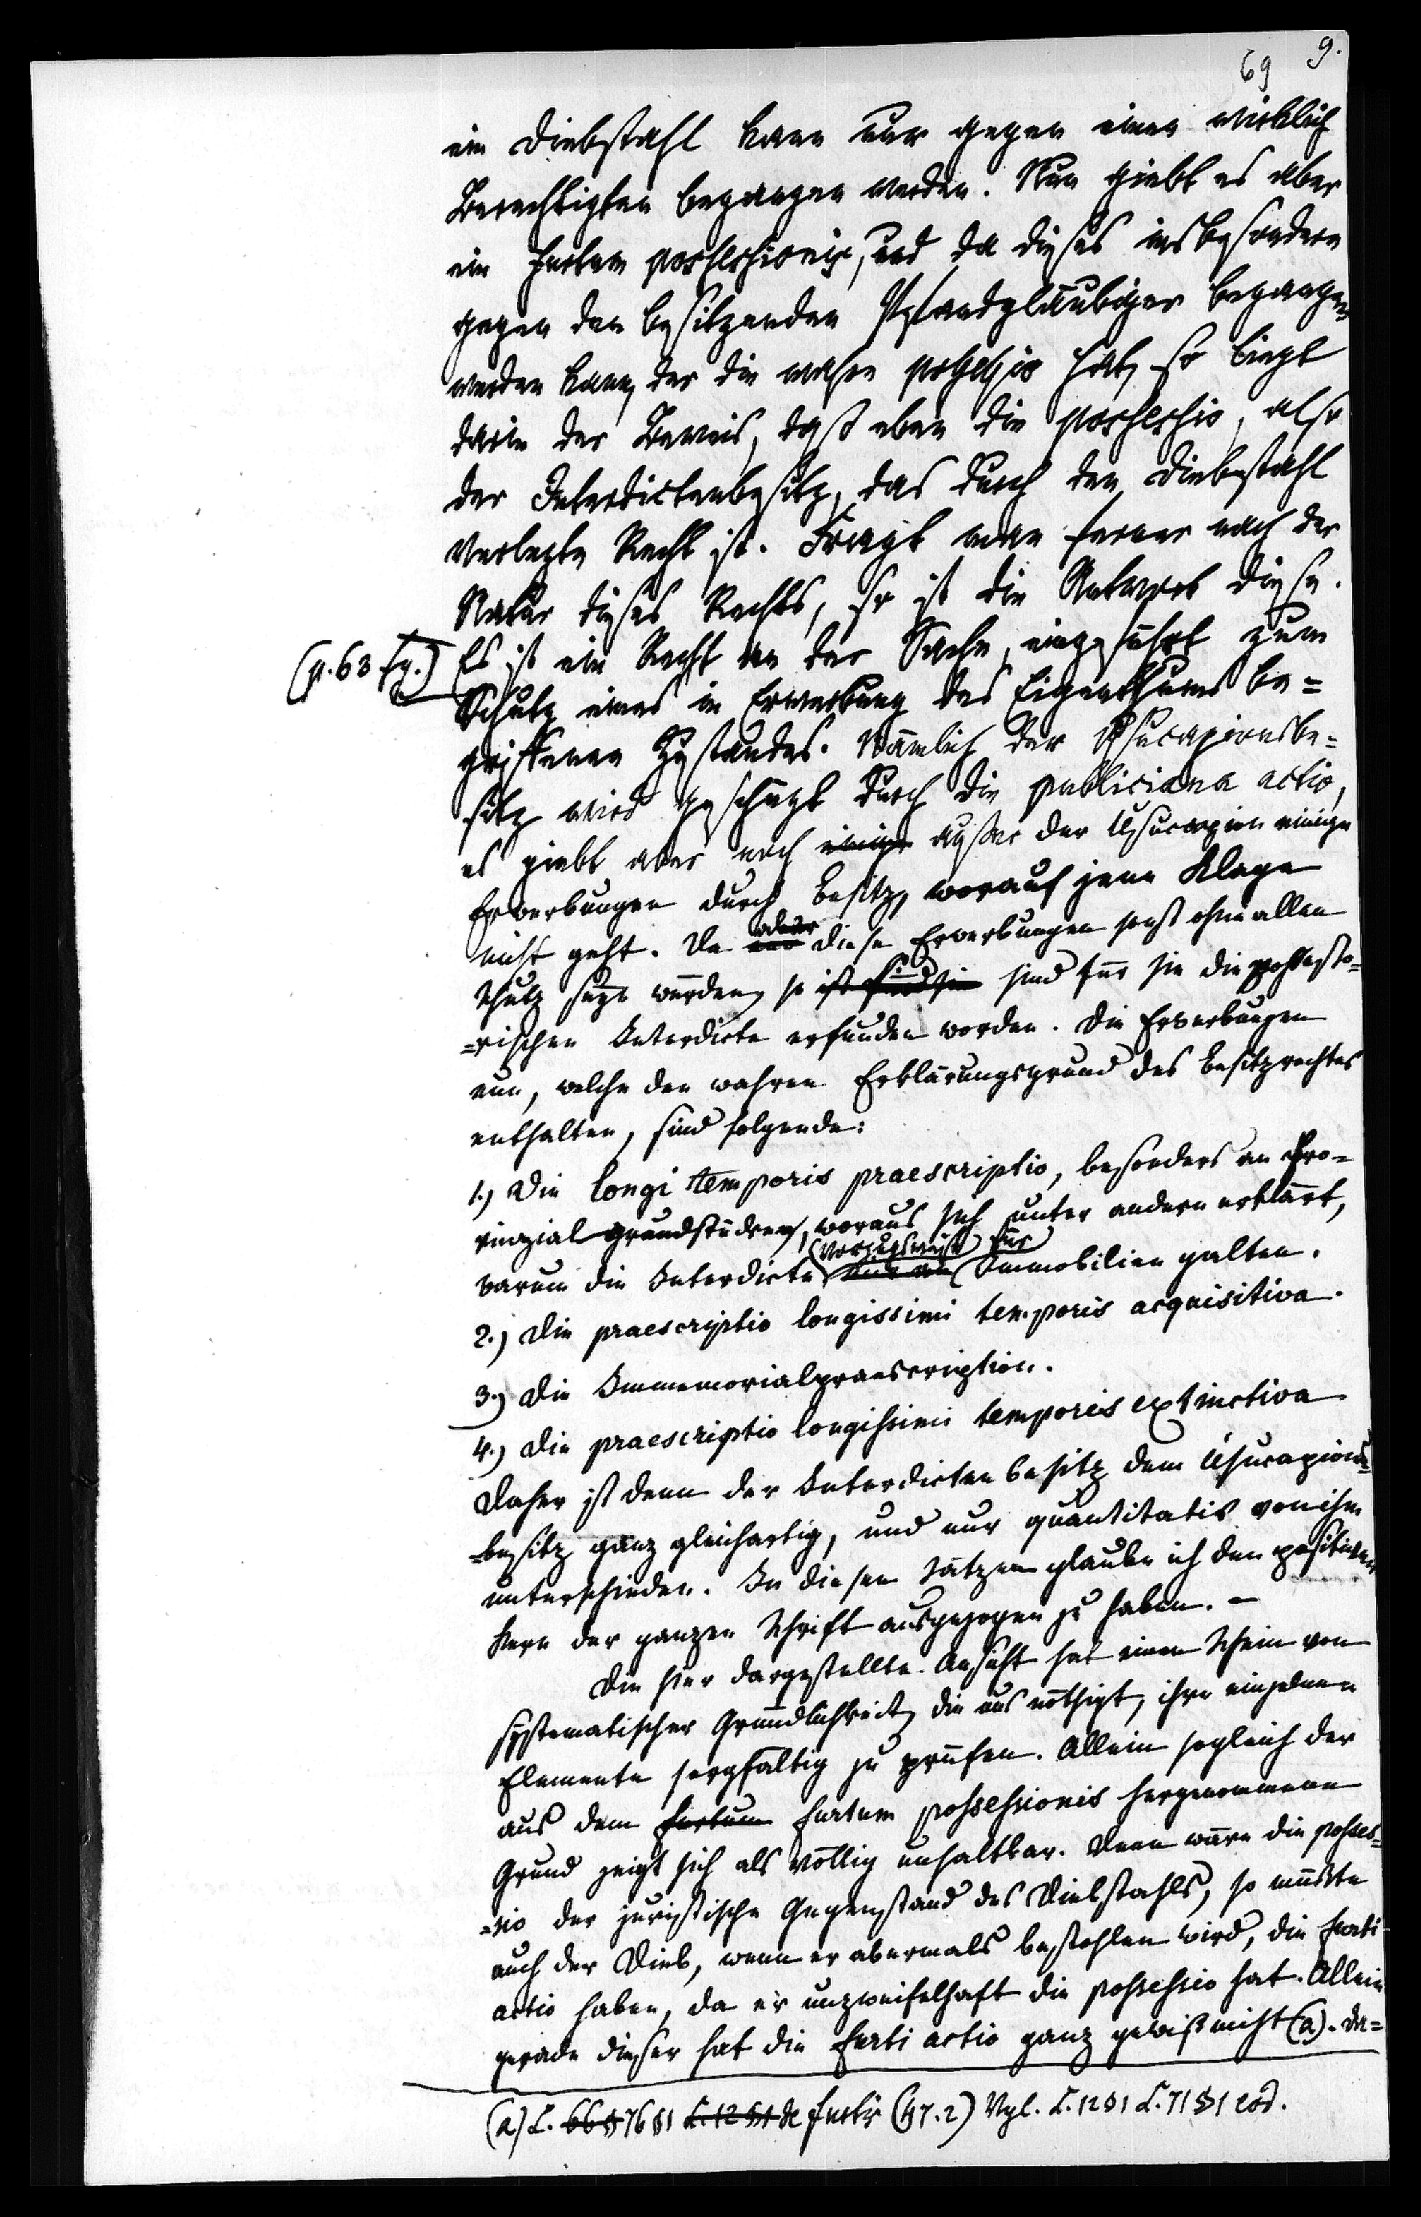 69 9.
ein Diebstahl kann nur gegen einen wirklich
Berechtigten begangen werden. Nun giebt es aber
ein furtum possessionis, und da dieses insbesondere
gegen den besitzenden Pfandgläubiger begangen
werden kann, der die wahre possessio hat, so liegt
darin der Beweis, daß eben die possessio, also
der Interdictenbesitz, das durch den Diebstahl
verlezte Recht ist. Fragt man ferner nach der
Natur dieses Rechts, so ist die Antwort diese.
(p. 63 fg.) Es ist ein Recht an der Sache, eingeführt zum
Schutz eines in Erwerbung des Eigenthums be=
griffenen Zustandes. Nämlich der Usucapionsbe=
sitz wird geschützt durch die publiciana actio,
es giebt aber noch einige außer der Usucapion einige
Erwerbungen durch Besitz, worauf jene Klage
nicht geht. Da aber diese Erwerbungen sonst ohne allen
Schutz seyn würden, so ist sind für sie die possesso=
=rischen Interdicte erfunden worden. Die Erwerbungen
nun, welche den wahren Erklärungsgrund des Besitzrechtes
enthalten, sind folgende:
1.) Die longi temporis praescriptio, besonders an Pro=
vinzialgrundstücken, woraus sich unter andern erklärt,
warum die Interdicte vorzugsweise für Immobilien galten.
2.) Die praescriptio longissimi temporis acquisitiva.
3.) Die Immemorialpraescription.
4.) Die praescriptio longissimi temporis extinctiva
Daher ist denn der Interdictenbesitz dem Usucapions=
=besitz ganz gleichartig, und nur quantitativ von ihm
unterschieden. In diesen Sätzen glaube ich den positiven
Kern der ganzen Schrift ausgezogen zu haben. –
Die hier dargestellte Ansicht hat einen Schein von
systematischer Gründlichkeit, die uns nöthigt, ihre einzelnen
Elemente sorgfältig zu prüfen. Allein sogleich der
aus dem furtum furtum possessionis hergenommene
Grund zeigt sich als völlig unhaltbar. Denn wäre die posses=
=sio der juristische Gegenstand des Diebstahls, so müßte
auch der Dieb, wenn er abermals bestohlen wird, die furti
actio haben, da er unzweifelhaft die possessio hat. Allein
gerade dieser hat die furti actio ganz gewiß nicht (a). Da=
(a) L. 66 § 76 §1 L. 12 §1 de furtis (47.2) Vgl. L. 12 §1 L. 71 §1 eod.